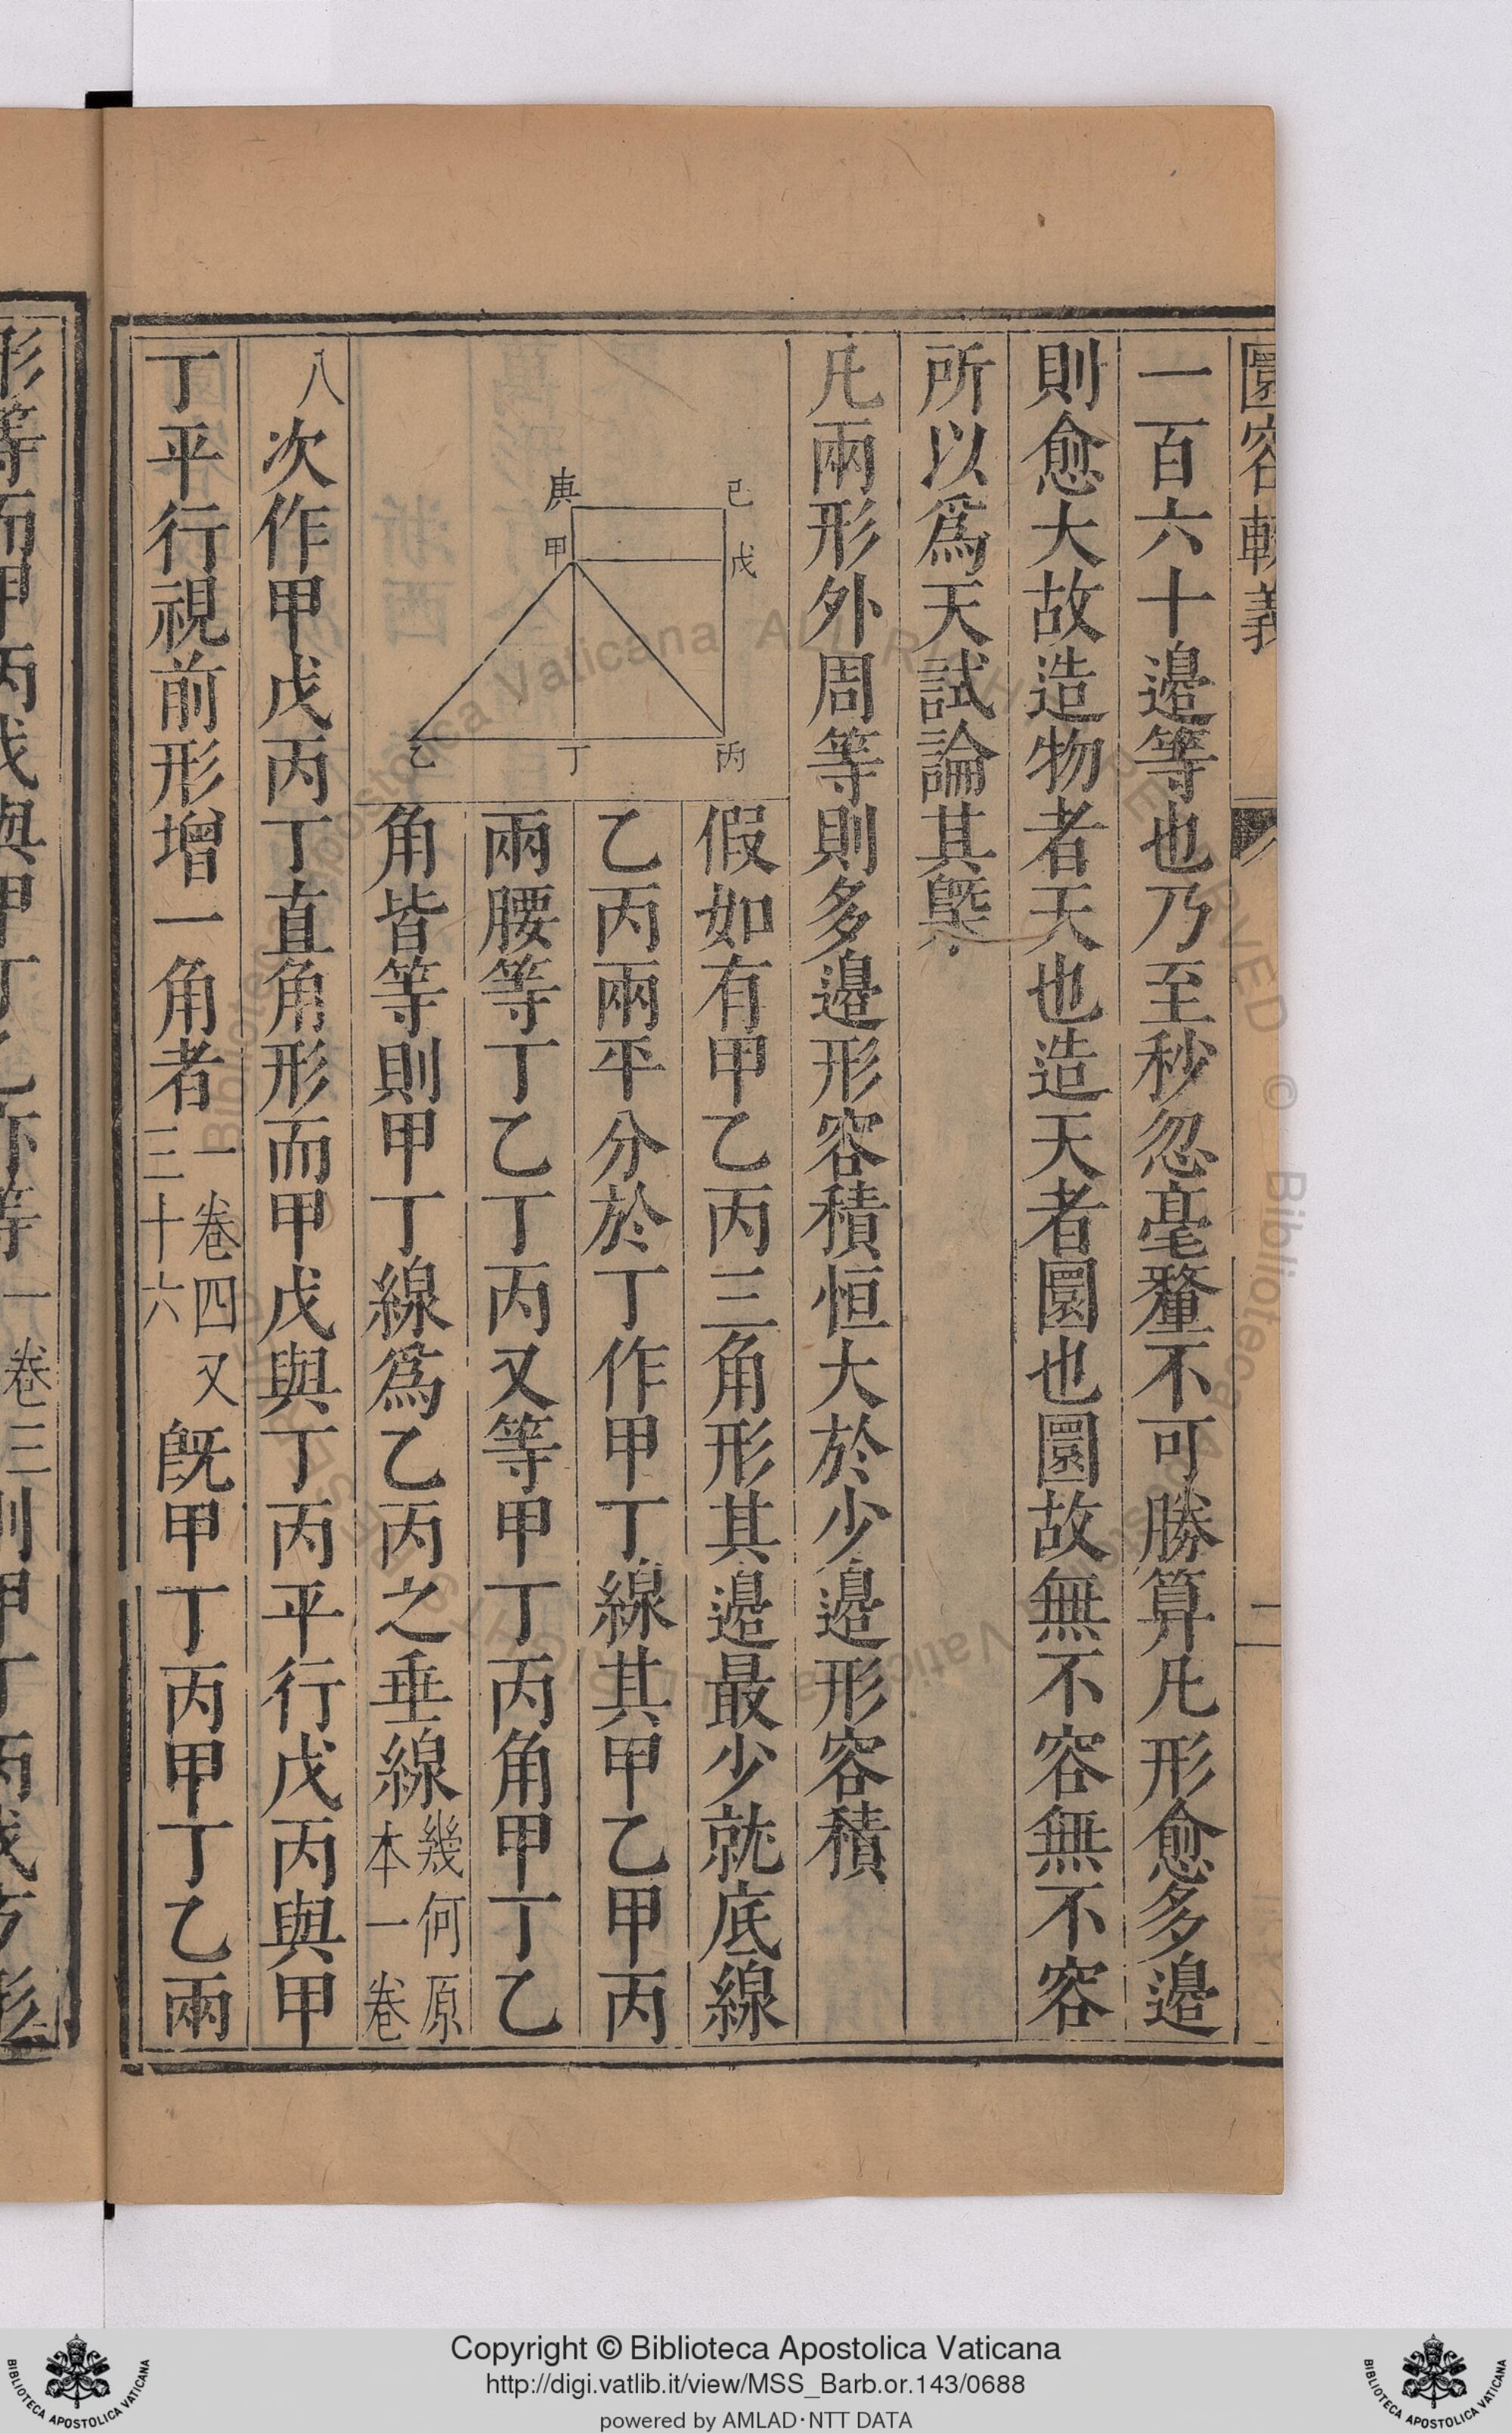 圜容較義
二
一百六十邉等也乃至秒忽毫釐不可勝算凡形愈多邉
則愈大故造物者天也造天者圜也圜故無不容無不容
所以爲天試論其槩
凡兩形外周等則多邉形容積恒大於少邉形容積
假如有甲乙丙三角形其邉最少就底線
乙丙兩平分於丁作甲丁線其甲乙甲丙
兩腰等丁乙丁丙又等甲丁丙角甲丁乙
角皆等則甲丁線爲乙丙之垂線幾何原本一卷
八次作甲戊丙丁直角形而甲戊與丁丙平行戊丙與甲
丁平行視前形增一角者一卷四又三十六旣甲丁丙甲丁乙兩
己
庚
戊
甲
丙
丁
乙
形等而甲丙戊與甲丁乙亦等一卷三則甲丁丙戊方形
Copyright © Biblioteca Apostolica Vaticana
http://digi.vatlib.it/view/MSS_Barb.or.143/0688
powered by AMLAD·NTT DATA
BIBLIOTECA APOSTOLICA VATICANA
BIBLIOTECA APOSTOLICA VATICANA